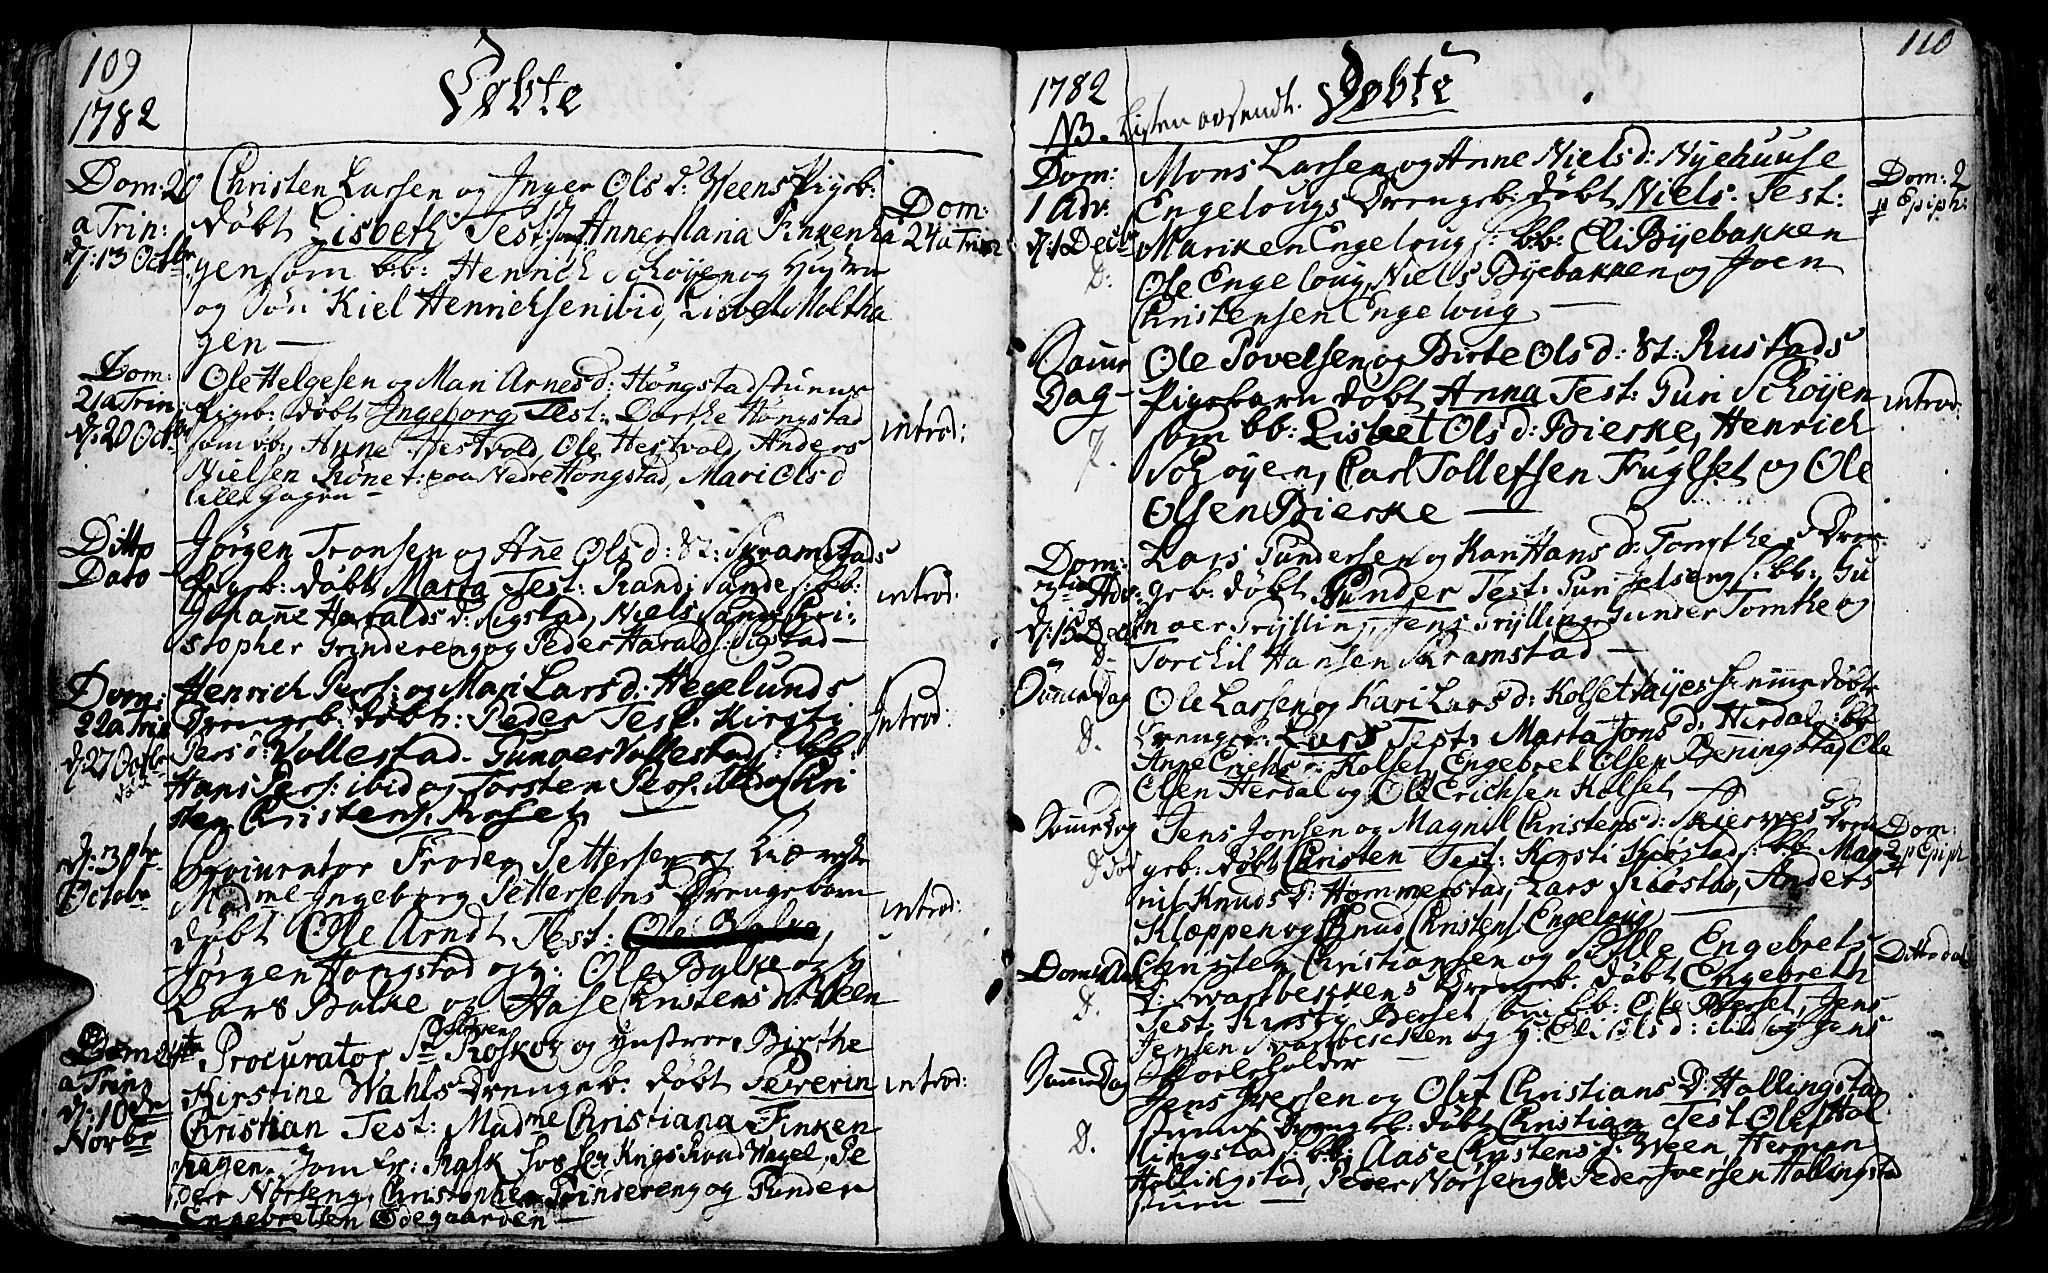 109
Døbte
1782
Dom: 20
a Trin:
d: 13 Octbr
Christen Larsen og Inger Ols d: Weens Pigeb:
døbt Lisbeth Test: Anne Maria Finkenha
gen som bb: Henrich Schøyen og Hustru
og Søn Kiel Henrichsen ibid, Lisbet Moltha
gen —
Dom:
24 a Trin
Dom:
21 a Trin:
d: 20 Octbr
Ole Helgesen og Mari Arnesd: Hongstadstuens
Pigeb: døbt Ingeborg Test: Dorthe Hongstad
som bb: Anne Hestvold, Ole Hestvold, Anders
Nielsen paa Nedre Hongstad, Mari Ols d
lille Hagen —
introd:
Ditto
Dato
Jørgen Tronsen og Añe Ols d: St: Skramstads
Pigeb: døbt Marta Test: Randi Sande s: bb:
Johañe Haralds d: Sigstad, Niels Sande Chri-
stopher Grindereng og Peder Harald s: Sigstad —
introd:
Dom:
22 a Trin
d: 27 Octbr
Henrich Pers: og Mari Lars d: Hegelunds
Drengeb: døbt: Peder Test: Kirsti
Pers d: Vollestad. Gunder Vollestad s: bb:
Hans Pers: ibid og Torsten Pers: ibid og Chri
sten Christens. Roset
Introd:
d: 30te
Octobr
Procurator Frode Pettersen og Kiereste
Madme Ingeborg Pettersens Drengebarn
døbt Ole Arndt Test: Ole Balke,
Jørgen Hongstad og H: Ole Balke og H
Lars Balke og Aase Christens d: Ween
introd:
Dom 24
a Trin
d: 10de
Novbr
Procurator Sr Roskog og Hustroe Birthe
Kirstine Wahls Drengeb: døbt Severin
Christian Test: Madme Christiana Finken
hagen. Jomfr: Rask hos Sr Kings Knud Wagel, Pe
der Norseng, Christopher Grindereng og Gunder
Engebretsen Ødegaarden —
introd:
110
1782
Døbte
NB. Listen avsendt.
Dom:
1 Adv:
d: 1 Decbr
D:
Mons Larsen og Anne Niels d: Nyehuuse
Engelougs Drengeb: døbt Niels. Test:
Mariken Engeloug s: bb: Eli Byebakken
Ole Engeloug, Niels Byebakken og Joen
Christensen Engeloug —
Dom: 2
p Epiph:
Samme
Dag —
Ole Povelsen og Birte Ols d: St: Rustads
Pigebarn døbt Anna Test: Guri Schøyen
som bb: Lisbet Ols d: Bierke, Henrich
Schøyen, Carl Tollefsen Fuglset og Ole
Olsen Bierke —
introd:
Dom:
3tia Adv:
d: 15 Decbr
D.
Lars Gundersen og Kari Hans d: Tomthe s Dren-
geb: døbt Gunder Test: Guri Jelseng s: bb: Gu
nder Gryllin, Jens Grylling Gunder Tomthe og
Torchil Hansen Skramstad —
Samme Dag
D.
Ole Larsen og Kari Lars d: Kolset hiemmedøbte
Drengeb: Lars Test: Marta Jons d: Herdal s: bb
Anne Erichs d: Kolset, Engebret Olsen Beningstad Ole
Olsen Herdal og Ole Erichsen Kolset —
Samme Dag
Jens Jonsen og Magnil Christens d: Skierves Dren
geb: døbt Christen Test: Kirsti Kiøstad s: bb: Mag
nil Knuds d: Hommerstad, Lars Kiøstad, Anders
Kloppen og Knud Christens. Engeloug —
Dom:
2 p Epiph
D.
Christen Christiansen og Sille Engebrets
d: Svartbeckkens Drengeb. døbt Engebreth
Test: Kirsti Berset som bb: Ole Berset, Jens
Jensen Svartbecken og H: Eli Ols d: ibid og Jens
Ditto dat
Samme Dag
D.
Jens Iversen og Oluf Christians d: Hollingstad
stuens Drengeb: døbt Christian Test Ole Hol
lingstad s: bb: Aase Christens d: Ween, Herman
Hollingstad, Peder Norseng & Peder Iversen Hollingsta
stuen —